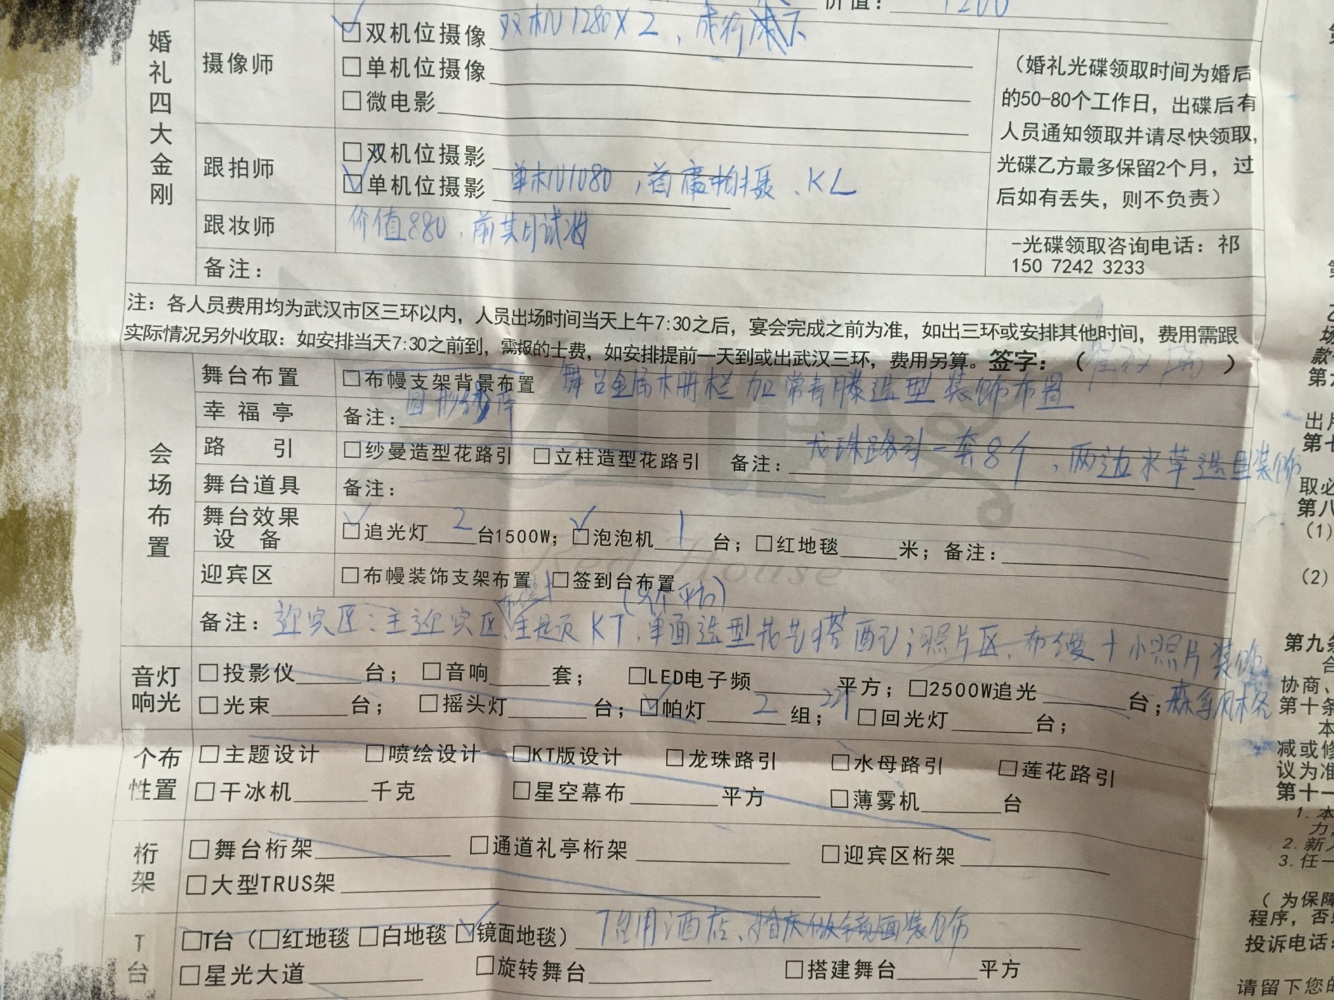 价值： 1200
婚礼四大金刚
摄像师
☑双机位摄像 双机1280×2、
☐单机位摄像
☐微电影
（婚礼光碟领取时间为婚后
的50-80个工作日，出碟后有
人员通知领取并请尽快领取，
光碟乙方最多保留2个月，过
后如有丢失，则不负责）
跟拍师
☐双机位摄影
☑单机位摄影 单机1080，首席拍摄、KL
跟妆师 价值880、前期试妆
-光碟领取咨询电话：祁
150 7242 3233
备注：
注：各人员费用均为武汉市区三环以内，人员出场时间当天上午7:30之后，宴会完成之前为准，如出三环或安排其他时间，费用需跟
实际情况另外收取：如安排当天7:30之前到，需报的士费，如安排提前一天到或出武汉三环，费用另算。签字：（ ）
会场布置
舞台布置 ☐布幔支架背景布置 舞台金属木栅栏加常青藤造型装饰布置
幸福亭 备注：
路引 ☐纱曼造型花路引 ☐立柱造型花路引 备注：龙珠路引一套8个、两边水草造型装饰
舞台道具 备注：
舞台效果
设备
☑追光灯2台1500W；☑泡泡机1台；☐红地毯 米；备注：
迎宾区 ☐布幔装饰支架布置 ☐签到台布置
备注：迎宾区：主迎宾区 KT，单面造型花艺搭配；照片区、布幔+小照片装饰
森系风格
音响灯光
☐投影仪 台； ☐音响 套； ☐LED电子频 平方；☐2500W追光 台；
☐光束 台； ☐摇头灯 台；☑帕灯 2 组； ☐回光灯 台；
个性布置
☐主题设计 ☐喷绘设计 ☐KT版设计 ☐龙珠路引 ☐水母路引 ☐莲花路引
☐干冰机 千克 ☐星空幕布 平方 ☐薄雾机 台
桁架
☐舞台桁架 ☐通道礼亭桁架 ☐迎宾区桁架
☐大型TRUS架
T台
☐T台（☐红地毯 ☐白地毯 ☑镜面地毯） T台用酒店、婚庆做镜面装饰
☐星光大道 ☐旋转舞台 ☐搭建舞台 平方
出片
第七
取必
第八
（1）
（2）
第九条
协商、
第十条
本
减或修
议为准
第十一
1.本
力
2.新人
3.任一
（为保障
程序，否
投诉电话：
请留下您的